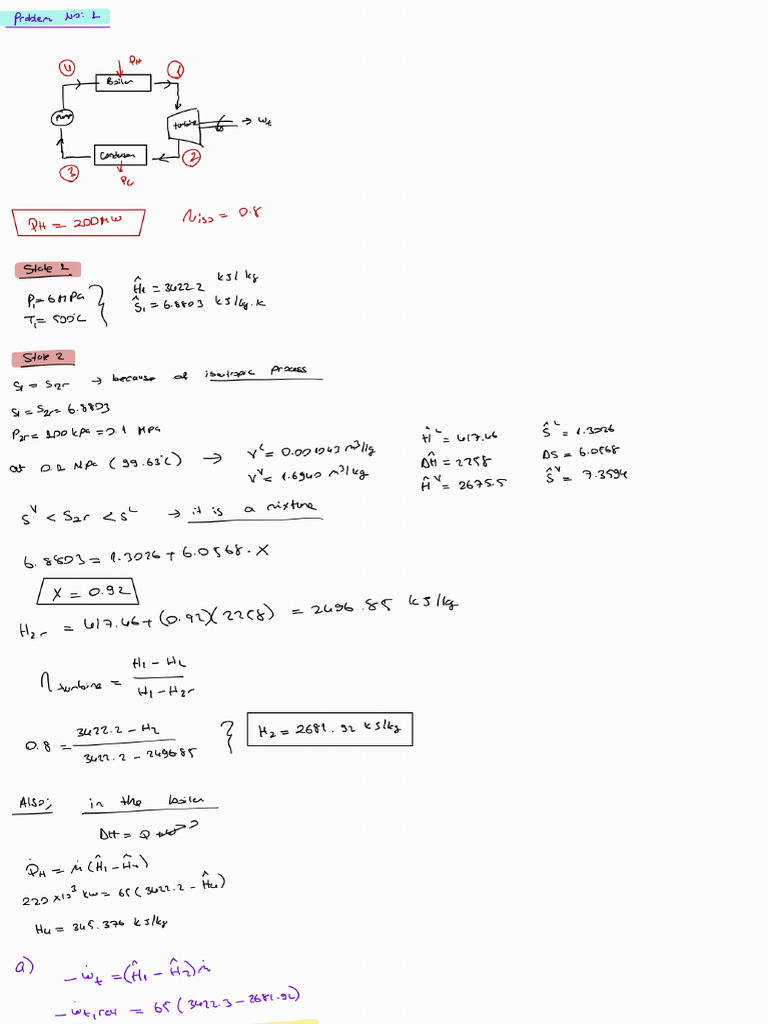 Problem No: 1
QH
4
1
Boiler
Pump
turbine
→ Wt
Condenser
3
2
QC
QH = 200MW
ηiso = 0.8
State 1
P₁ = 6 MPa
T₁ = 500°C
Ĥ₁ = 3422.2 kJ/kg
Ŝ₁ = 6.8803 kJ/kg.K
State 2
S₁ = S₂r → because of isotropic process
S₁ = S₂r = 6.8803
P₂r = 100 kPa = 0.1 MPa
at 0.1 MPa (99.63°C) → V^L = 0.001043 m³/kg
V^V = 1.6940 m³/kg
Ĥ^L = 417.46
ΔĤ = 2258
Ĥ^V = 2675.5
Ŝ^L = 1.3026
ΔS = 6.0568
Ŝ^V = 7.3594
S^V < S₂r < S^L → it is a mixture
6.8803 = 1.3026 + 6.0568 . X
X = 0.92
H₂r = 417.46 + (0.92)(2258) = 2496.85 kJ/kg
η turbine = H₁ - H₂ / H₁ - H₂r
0.8 = 3422.2 - H₂ / 3422.2 - 2496.85
H₂ = 2681.92 kJ/kg
Also; in the boiler
ΔH = Q
Q̇H = ṁ(Ĥ₁ - Ĥ₄)
220 x10³ kW = 65(3422.2 - Ĥ₄)
H₄ = 345.376 kJ/kg
a) -Ẇt = (Ĥ₁ - Ĥ₂)ṁ
-Ẇt,rev = 65(3422.3 - 2681.92)